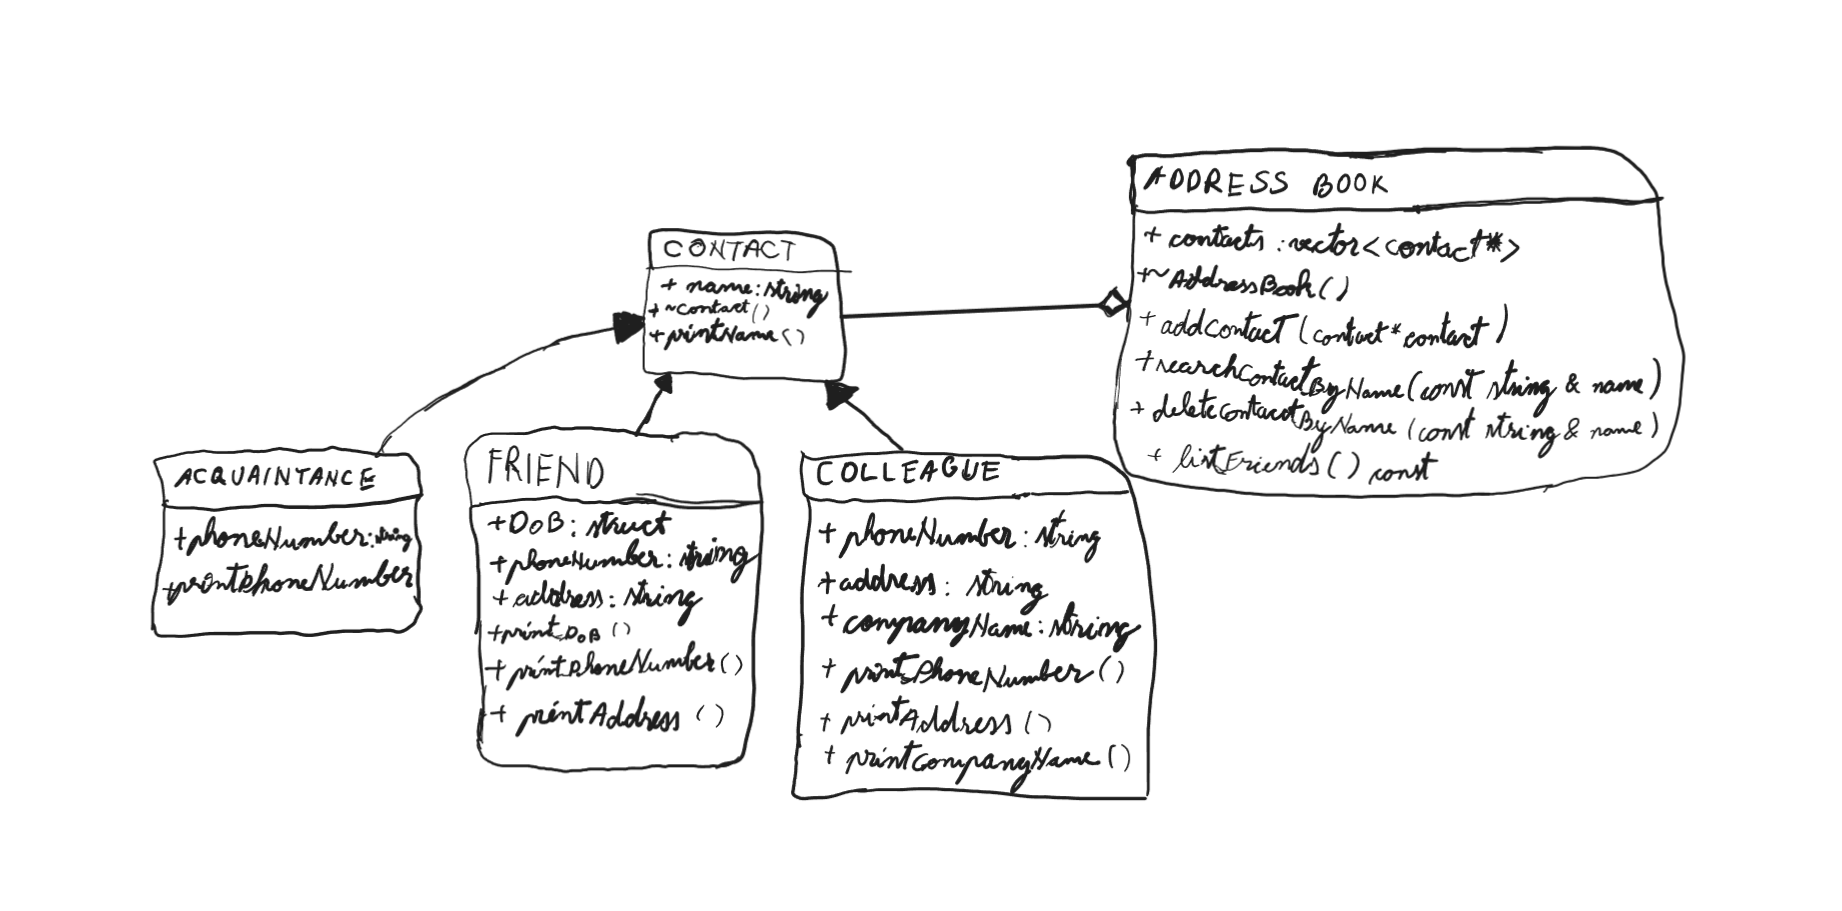 CONTACT
+ name: string
+ ~contact()
+ printName()
ADDRESS BOOK
+ contacts : vector<contact*>
+~AddressBook()
+ addContact (contact* contact)
+searchContactByName(const string & name)
+ deleteContactByName (const string & name)
+ listFriends() const
ACQUAINTANCE
+phoneNumber: string
+printPhoneNumber
FRIEND
+DoB: struct
+phoneNumber: string
+ address: string
+print DoB ()
+ printPhoneNumber()
+ printAddress ()
COLLEAGUE
+ phoneNumber: string
+address: string
+ companyName: string
+ printPhoneNumber()
+ printAddress ()
+ printCompanyName ()